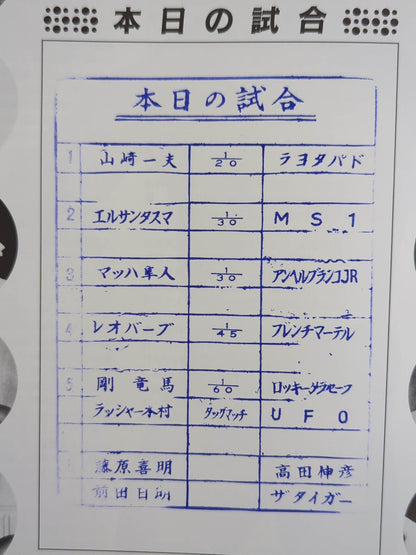 本日の試合
本日の試合
1 山崎一夫 1/20 ラヨタバド
2 エルサンタスマ 1/30 MS1
3 マッハ隼人 1/30 アンヘルブランコJR
4 レオバーブ 1/45 フレンチマーテル
5 剛竜馬 1/60 ロッキーダラセーフ
ラッシャー木村 タッグマッチ UFO
藤原喜明 高田伸彦
前田日明 ザタイガー